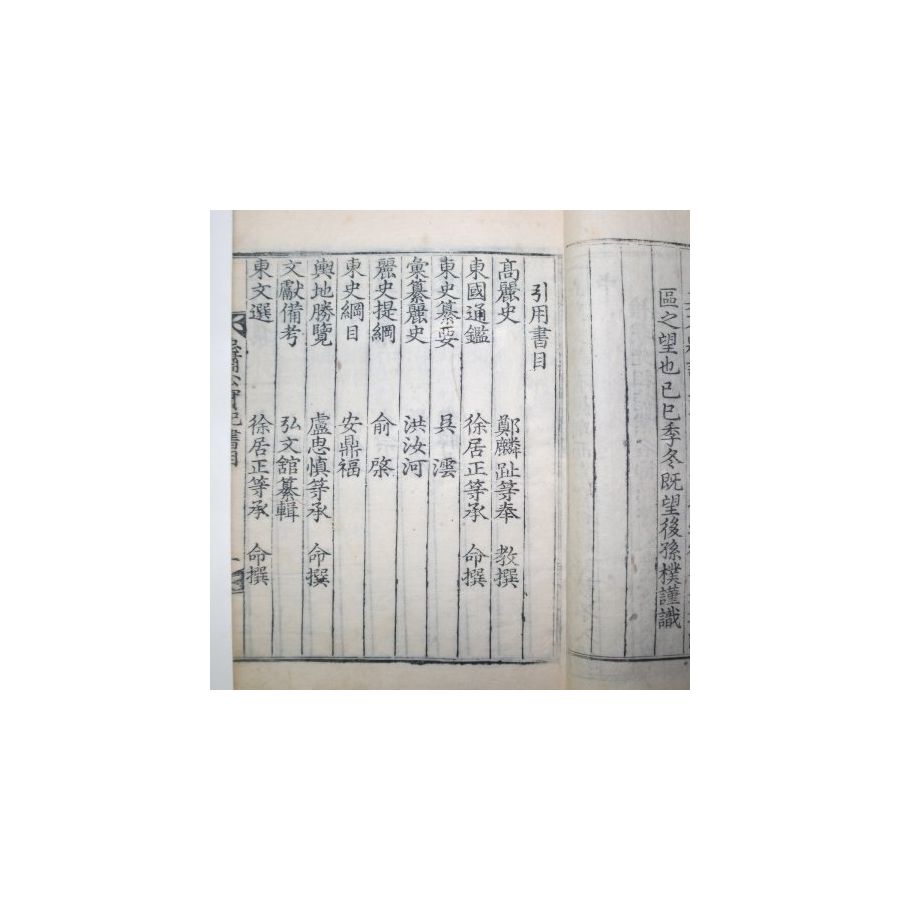 區之望也己巳季冬既望後孫樸謹識
引用書目
高麗史 鄭麟趾等奉 教撰
東國通鑑 徐居正等承 命撰
東史纂要 吳澐
彙纂麗史 洪汝河
麗史提綱 俞棨
東史綱目 安鼎福
輿地勝覽 盧思愼等承 命撰
文獻備考 弘文舘纂輯
東文選 徐居正等承 命撰
實紀書目